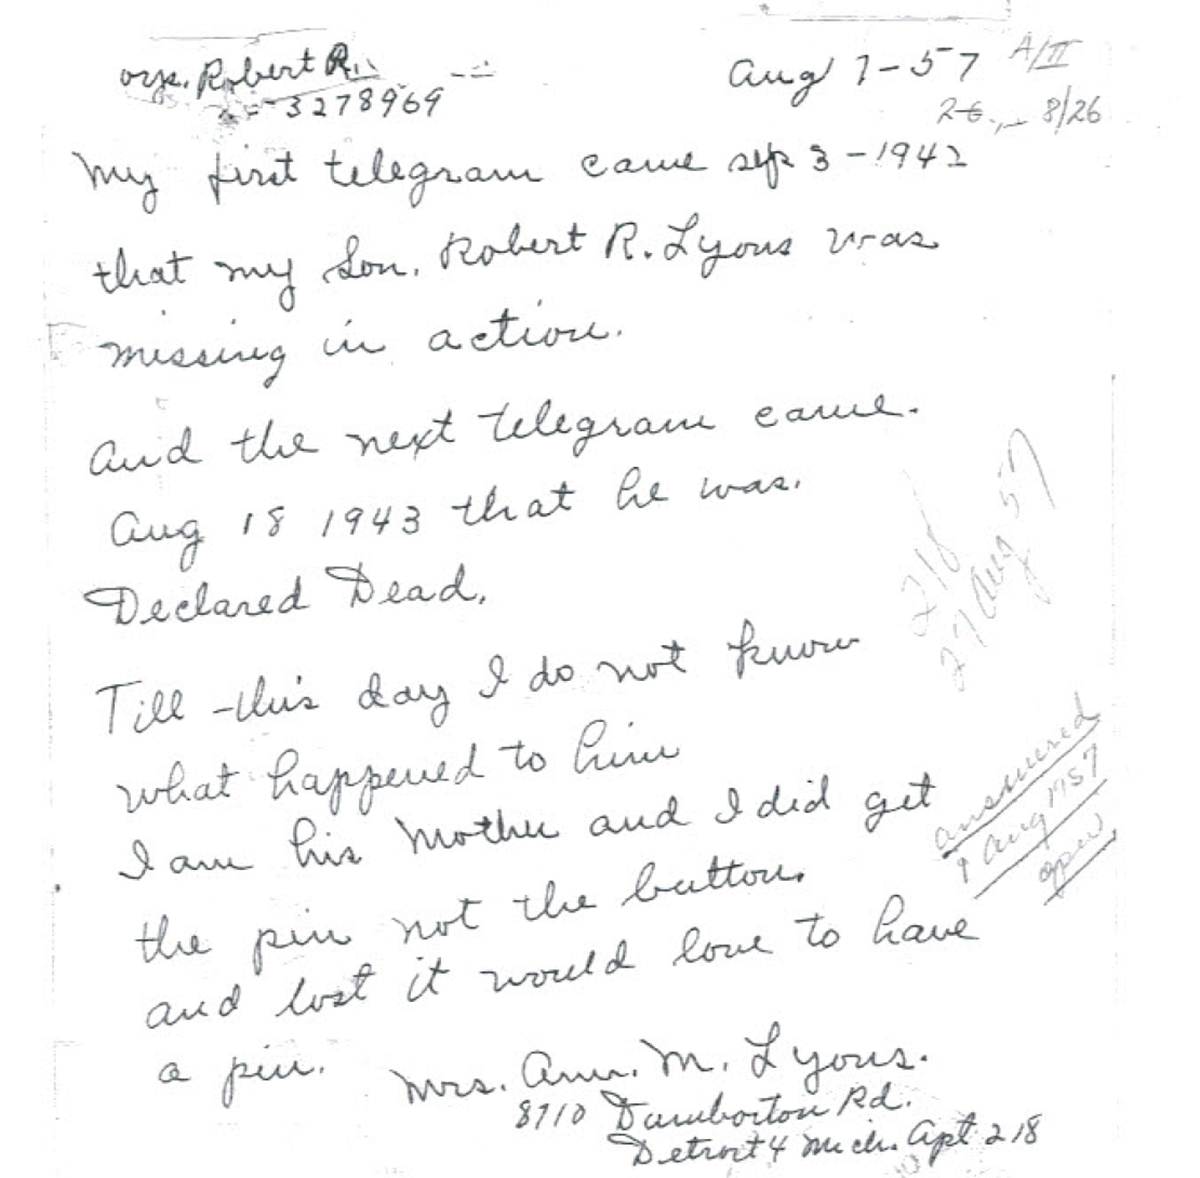 Robert R.
3278969
Aug 7-57 A/II
8/26
My first telegram came sep 3-1942
that my Son. Robert R. Lyons was
missing in action.
and the next telegram came.
Aug 18 1943 that he was.
Declared Dead.
Till this day I do not know
what happened to him
I am his Mother and I did get
the pin not the button.
and lost it would love to have
a pin.
Mrs. Ann. M. Lyons.
8710 Dumborton Rd.
Detroit 4 Mich. Apt 218
218
27 Aug 57
answered
9 Aug 1957